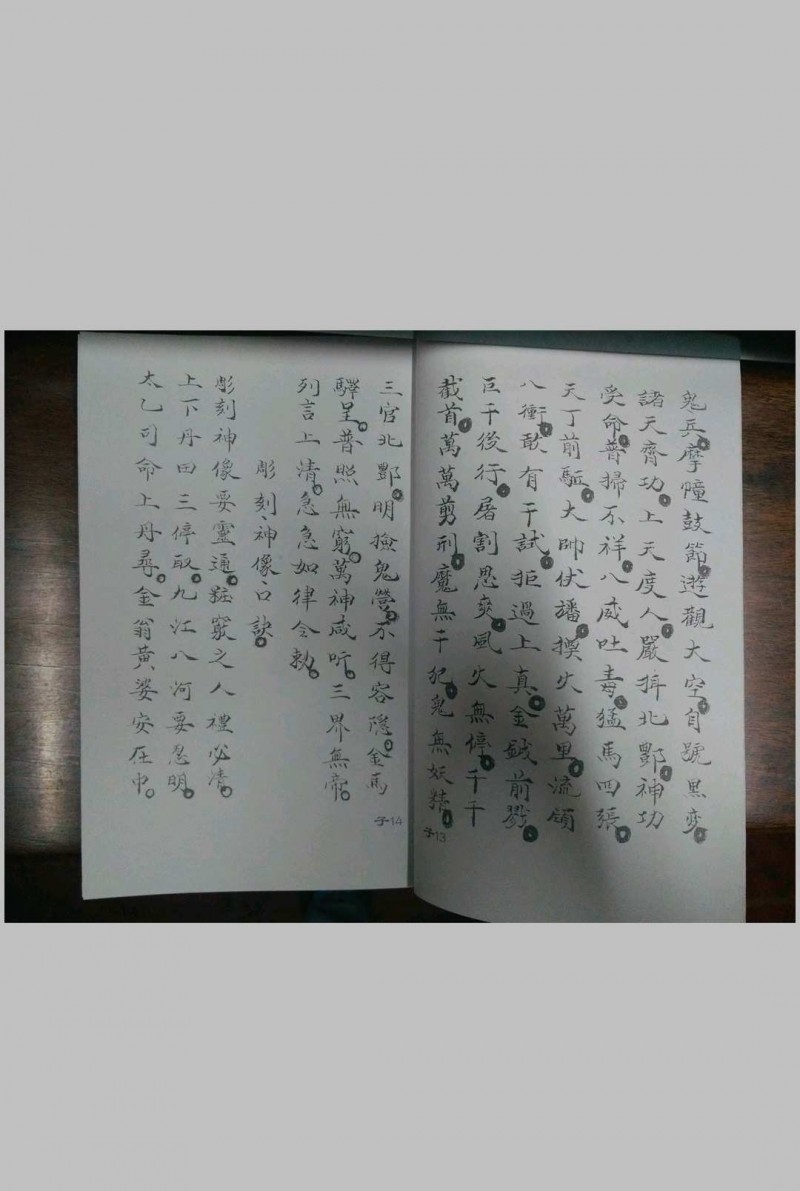 鬼兵。摩幢鼓節。遊觀大空。自號黑㚇。
諸天齊功。上天度人。嚴拝北酆。神功
受命。普掃不祥。八威吐毒。猛馬四張。
天丁前驅。大帥伏旛。揆火萬里。流領
八衝。敢有干試。拒過上真。金鉞前戮。
巨千後行。屠割思㚇。風火無停。千千
截首。萬萬剪刑。魔無干犯。鬼無妖精。
子-13
三官北酆。明撿鬼營。不得容隱。金馬
驛呈。普照無窮。萬神咸听。三界無帝。
列言上清。急急如律令勅。
彫刻神像口訣。
彫刻神像要靈通。之人禮必清。
上下丹田三停取。九江八河要忍明。
太乙司命上丹尋。金翁黃婆安在中。
子-14